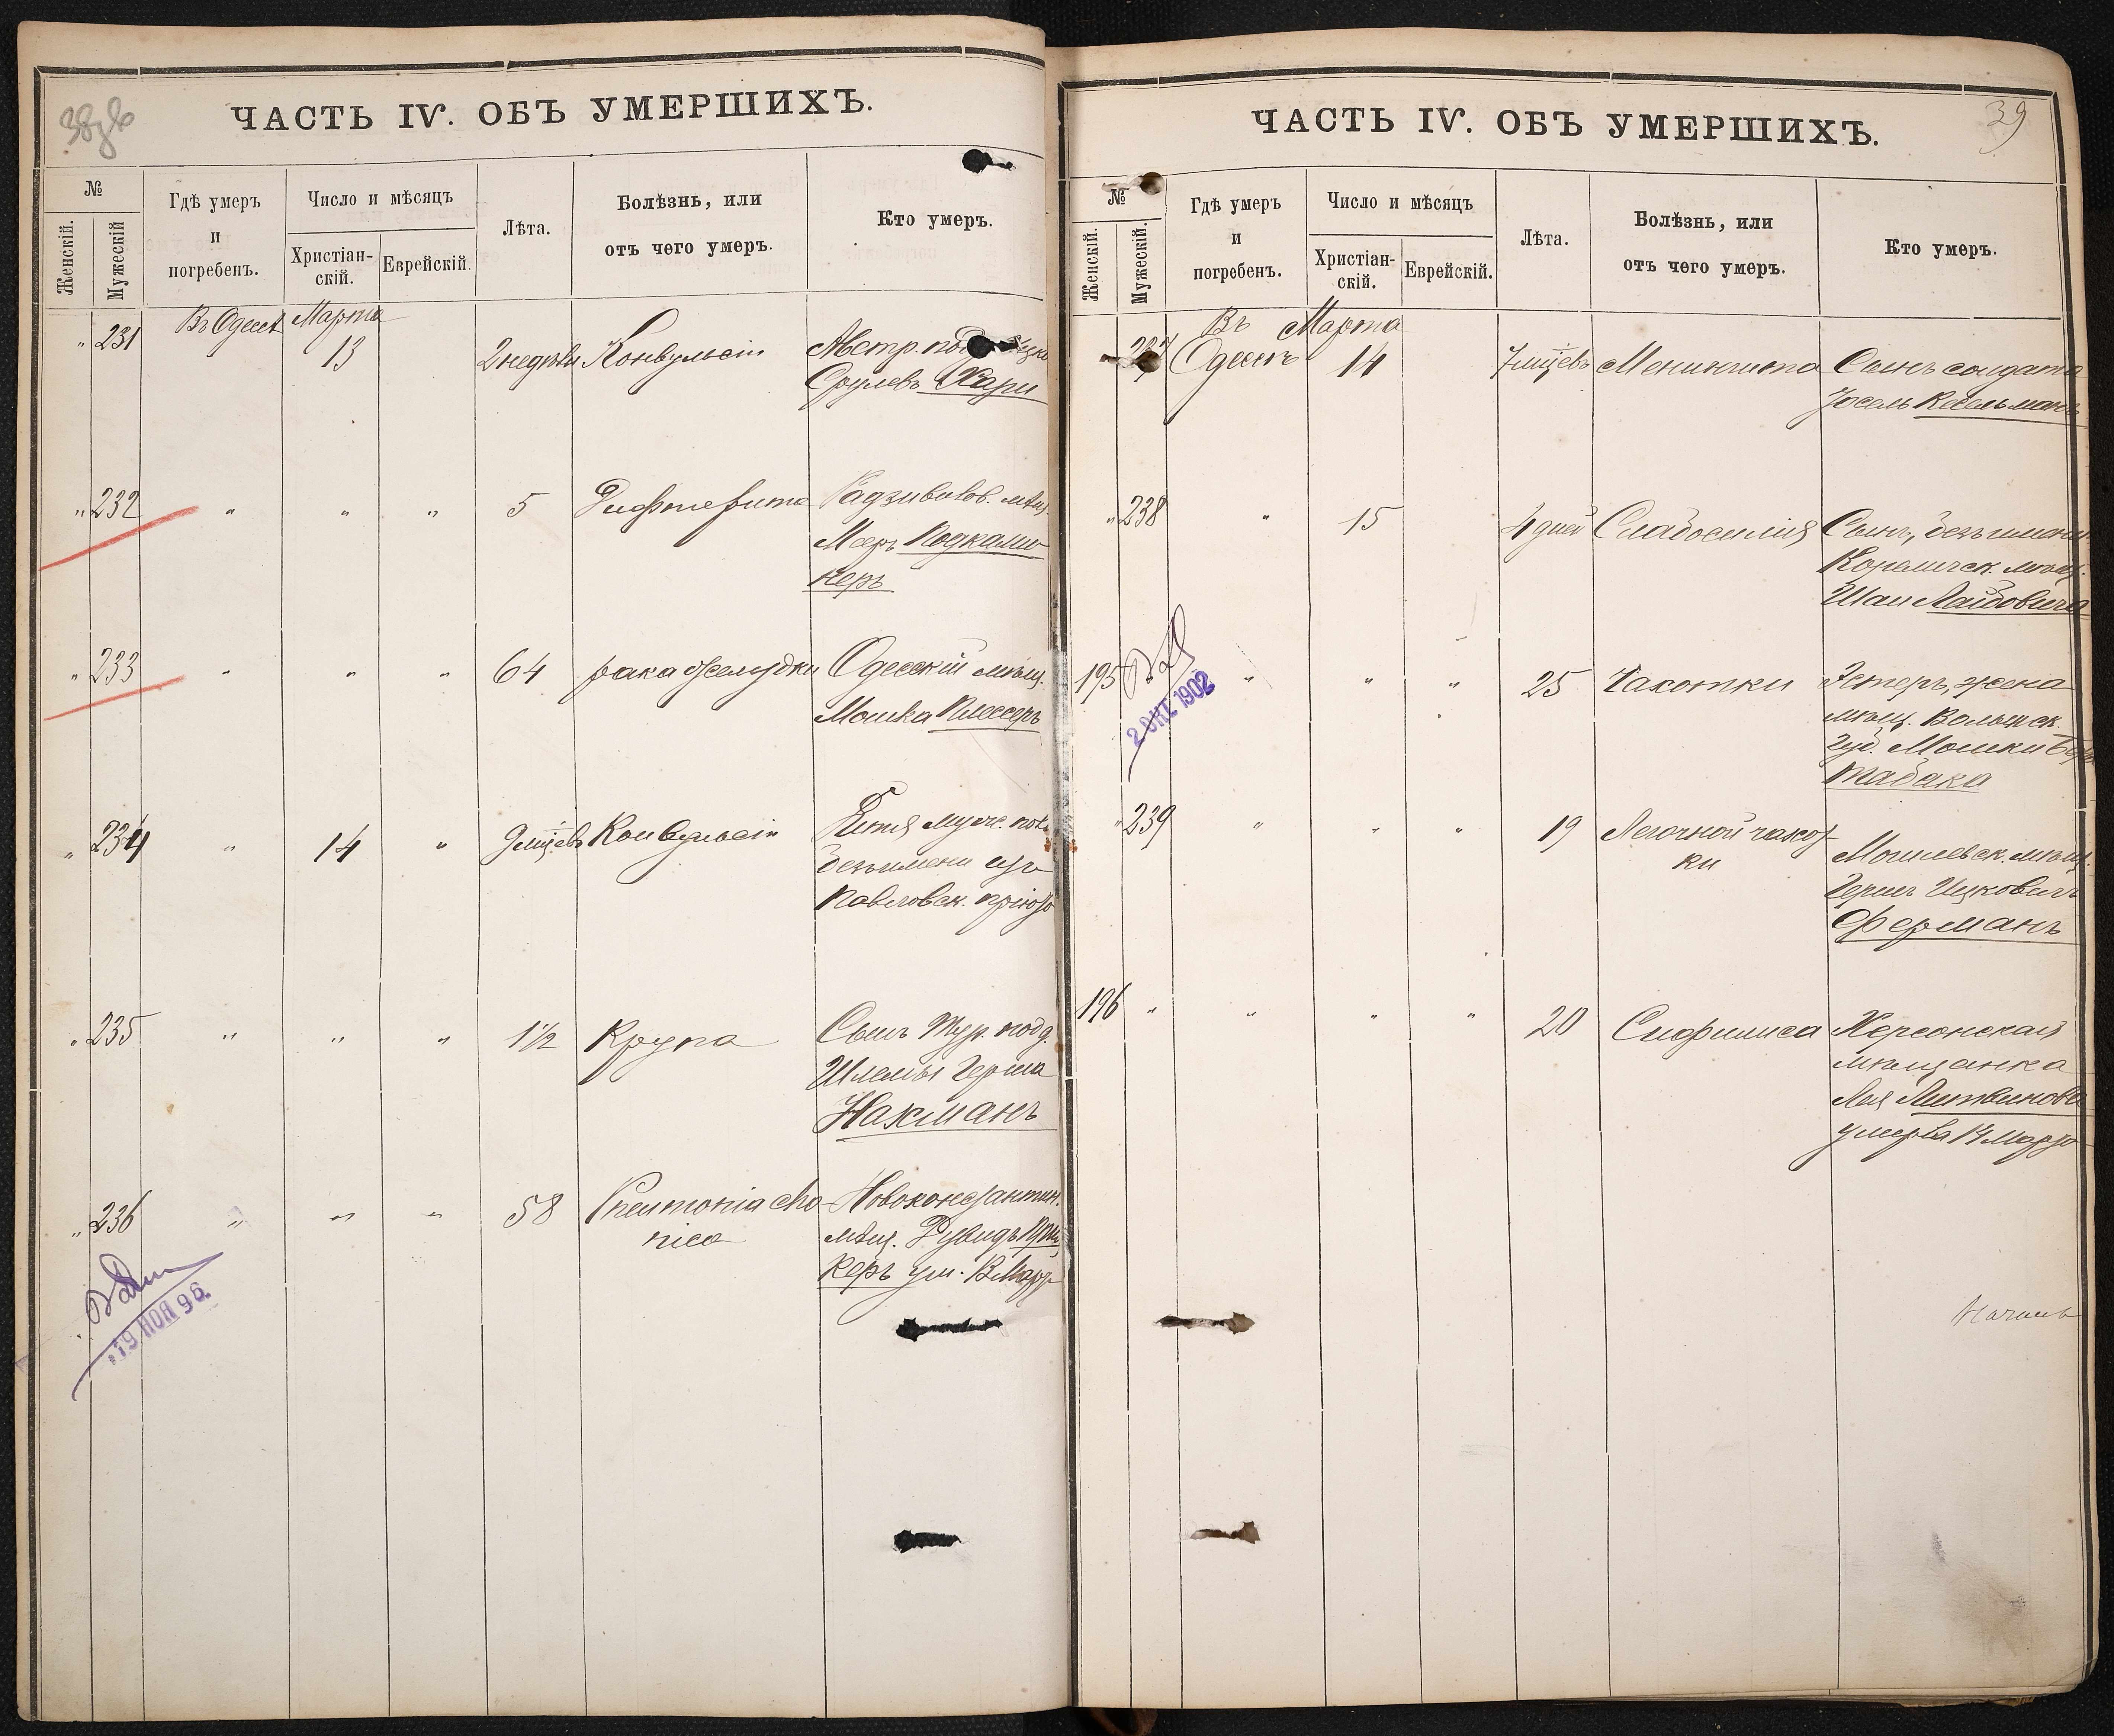 ЧАСТЬ IV. ОБЪ УМЕРШИХЪ.
№
Женскій.
Мужескій
Гдѣ умеръ
и
погребенъ.
Число и мѣсяцъ
Христіан-
скій.
Еврейскій.
Лѣта.
Болѣзнь, или
отъ чего умеръ.
Кто умеръ.
Въ Одессѣ Марта
" 231 13 2 недѣли Конвульсіи Австр. под
Срулевъ Хари
" 232 " " " 5 Дифтерита Радзивилов. мѣщ.
Мееръ Подками-
неръ
" 233 " " " 64 рака желудка Одесскій мѣщ.
Мошка Плессеръ
" 234 " 14 " 9 мцевъ Конвульсіи Дитя мужс. пола
безъ имени изъ
Павловск. пріюта
" 235 " " " 1½ Крупа Сынъ Тур. подд.
Шлемы Герша
Нахманъ
" 236 " " " 58 Pneumonia chro-
nica
Новоконстантин.
мѣщ. Рувидъ
керъ ум. 13 Марта
19 НОЯ 96.
ЧАСТЬ IV. ОБЪ УМЕРШИХЪ.
39
№
Женскій.
Мужескій.
Гдѣ умеръ
и
погребенъ.
Число и мѣсяцъ
Христіан-
скій.
Еврейскій.
Лѣта.
Болѣзнь, или
отъ чего умеръ.
Кто умеръ.
Въ Марта
" 237 Одессѣ 14 7 мцевъ Менингита Сынъ солдата
Іосель Кесельманъ
" 238 " 15 4 дней Слабосилія Сынъ, безъ имени
Кореличск. мѣщ.
Шаи Лайбовича
195 " " " 25 Чахотки Эстеръ, жена
мѣщ. Волынск.
Губ. Мошки
Табака
2 ОКТ 1902
" 239 " " " 19 Легочной чахот-
ки
Могилевск. мѣщ.
Гершъ Ицковичъ
Ферманъ
196 " " " " 20 Сифилиса Херсонская
мѣщанка
Лея Литвинова
умерла 14 Марта